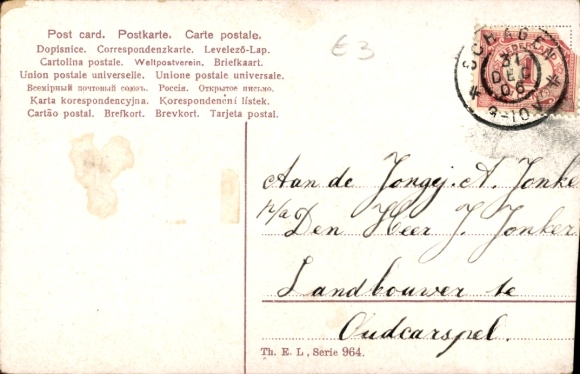 Post card. Postkarte. Carte postale.
Dopisnice. Correspondenzkarte. Levelező-Lap.
Cartolina postale. Weltpostverein. Briefkaart.
Union postale universelle. Unione postale universale.
Всемірный почтовый союзъ. Россія. Открытое письмо.
Karta korespondencyjna. Korespondenční lístek.
Cartão postal. Brefkort. Brevkort. Tarjeta postal.
€3
SCHAGEN
NEDERLAND
31
DEC
06
9-10V
1
Aan de Jongej. A. Jonker
p/a Den Heer J. Jonker
Landbouwer te
Oudcarspel.
Th. E. L., Serie 964.